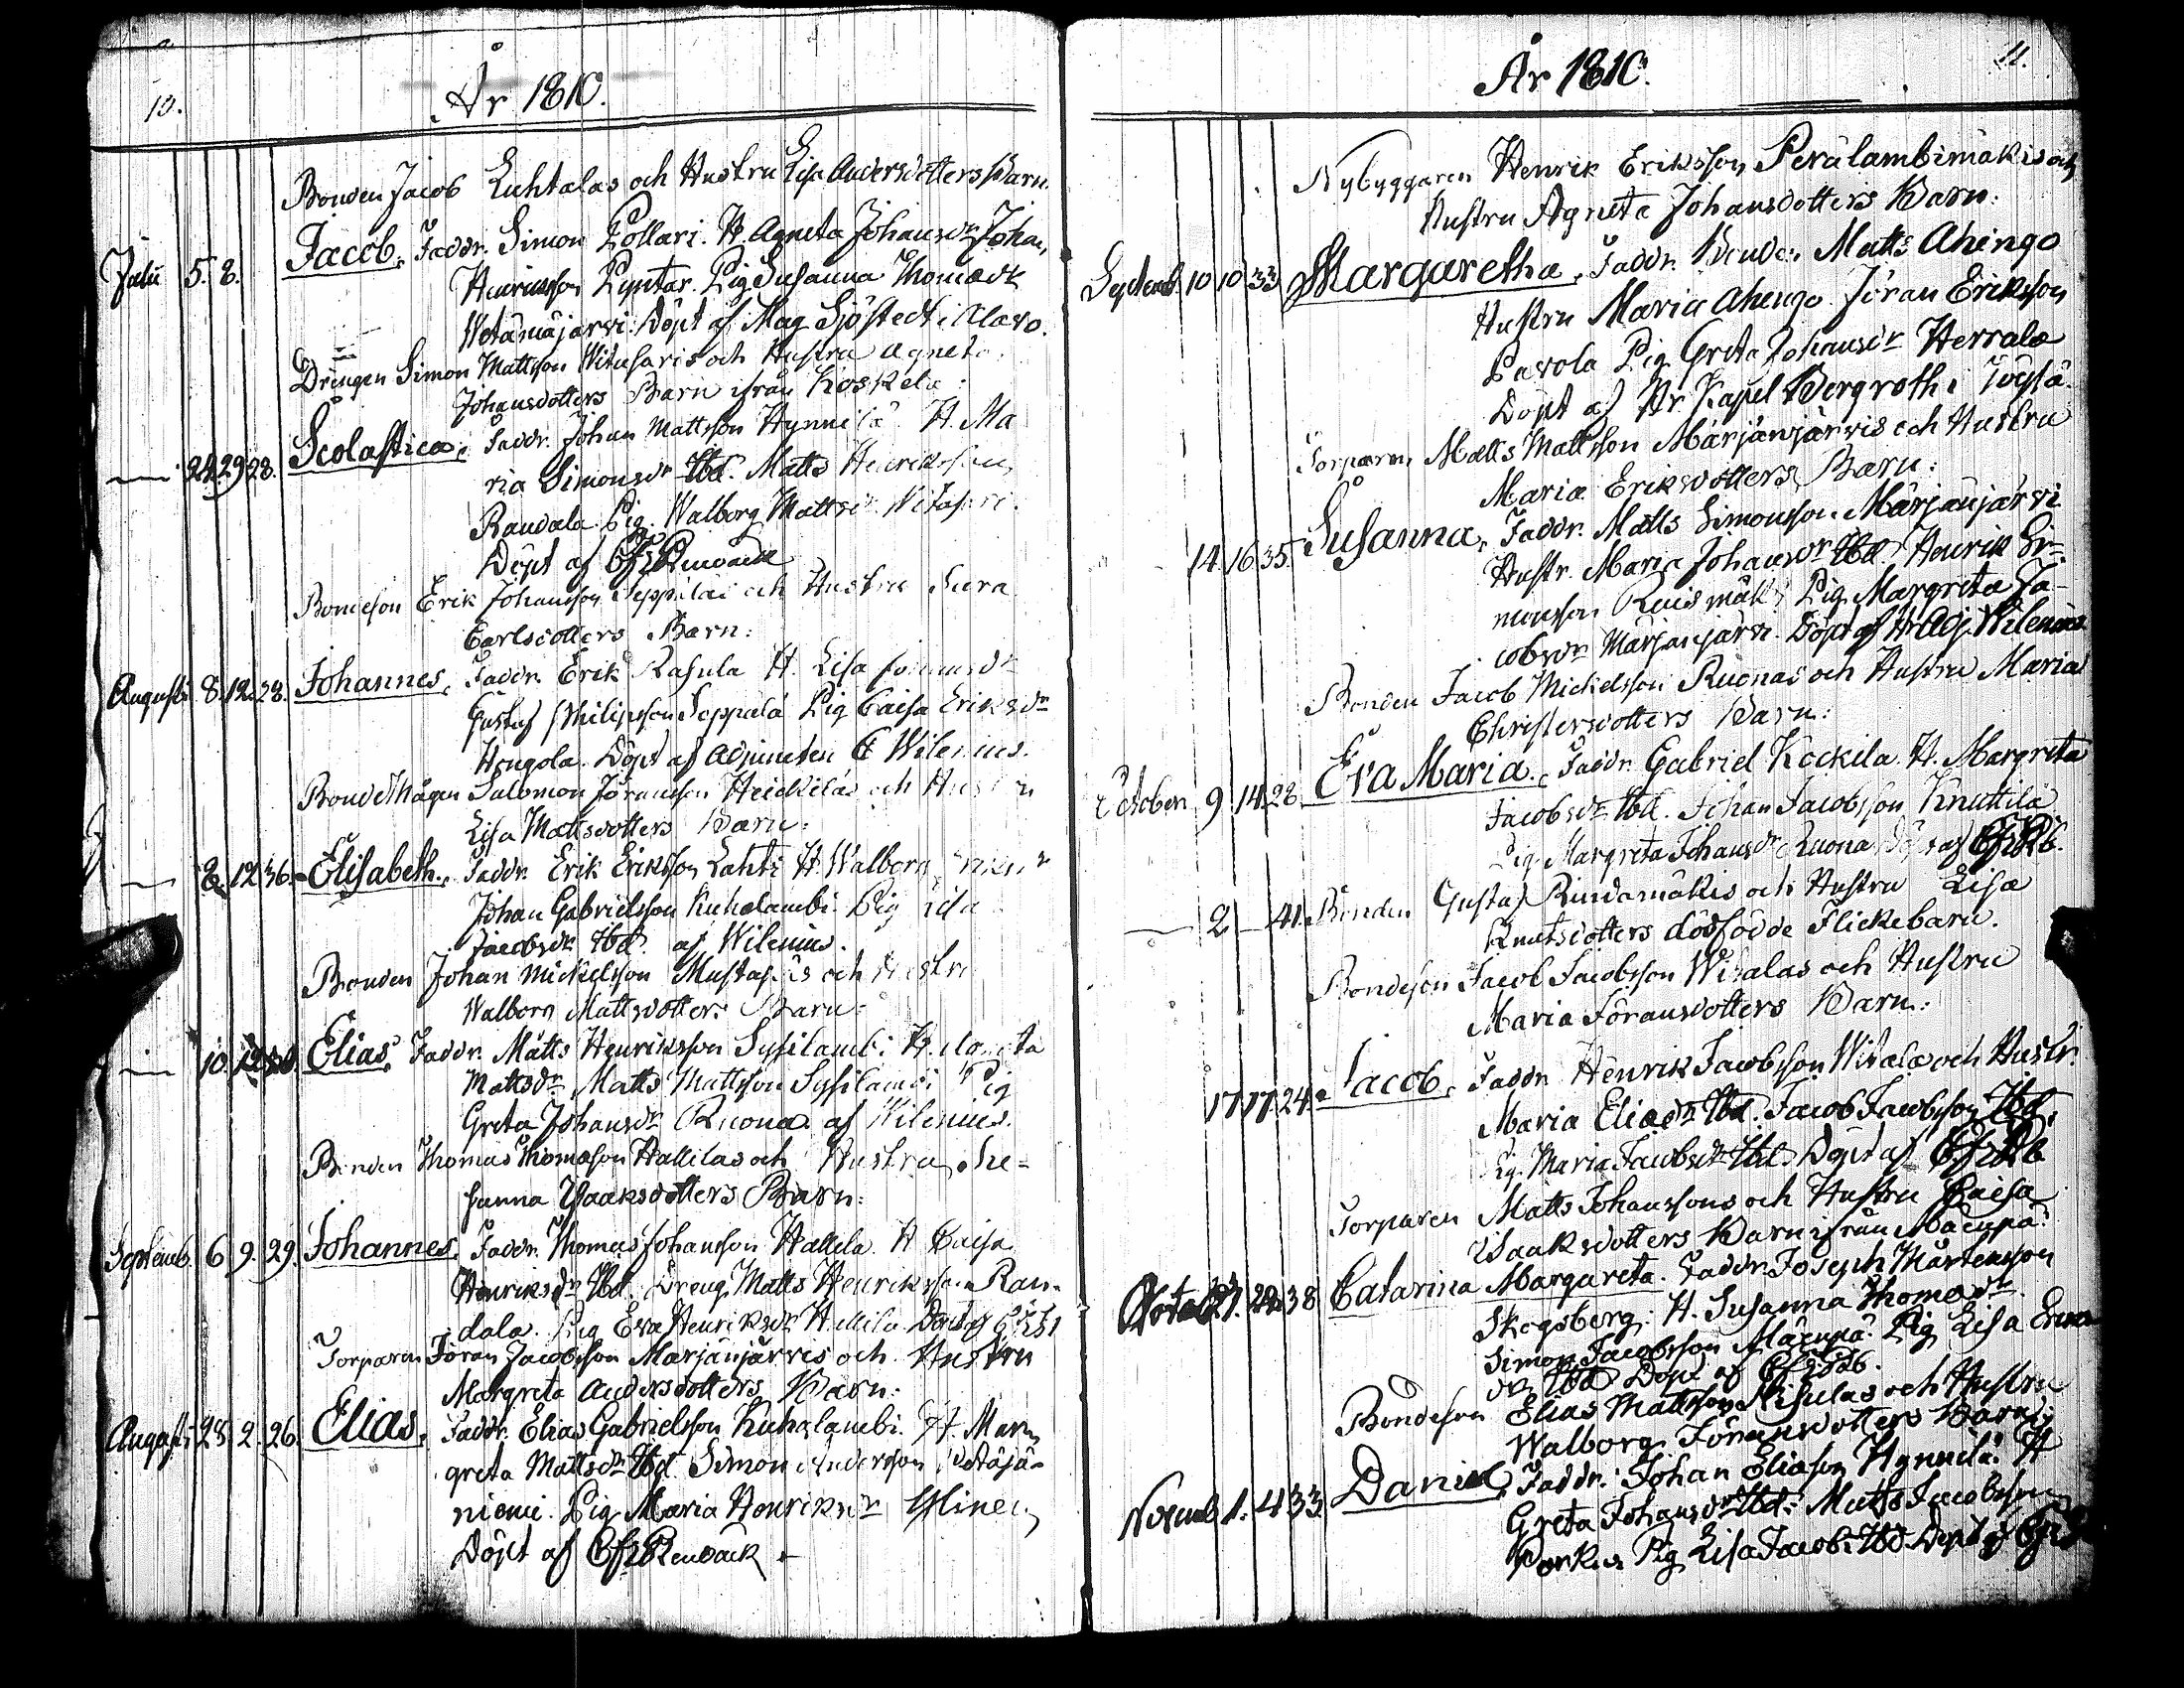 10.
År 1810.
Bonden Jacob Luhtalas och Hustru Lisa Andersdotters Barn.
Julii 5. 8. Jacob. Faddr. Simon Pollari. H. Agneta Johansdr Johan
Henriksson Pyntar. Pig Susanna Thomædr
Döpt af Mag Sjöstedt i Alavo.
Drengen Simon Mattsson Witasaris och Hustru Agneta
Johansdotters Barn ifrån Koskela:
24 29 28. Scolastica, Faddr. Johan Mattsson Hynnilä H. Ma
ria Simonsdr Ibd. Matts Henriksson
Randala Pig. Walborg Mattsdr Witasari.
Döpt af
Bondeson Erik Johansson Seppäläs och Hustru
Carlsdotters Barn:
Augusti 8. 12. 28. Johannes, Faddr. Erik Rasula H. Lisa
Gustaf Philipsson Seppälä Pig Caisa Eriksdr
Hongola. Döpt af Adjuncten E Wilenius.
Bondemågen Salomon Jöransson Heickiläs och Hustru
Lisa Mattsdotters Barn:
8. 12 36. Elisabeth. Faddr. Erik Eriksson Lahti H. Walborg
Johan Gabrielsson Kuhalambi. Pig
Jacobsdr Ibd. af Wilenius.
Bonden Johan Mickelsson och Hustru
Walborg Mattsdotters Barn:
10. Elias, Faddr. Matts Henriksson Sysilambi H.
Mattsdr Matts Mattsson Sysilambi Pig
Greta Johansdr Ruona af Wilenius.
Bonden Thomas Thomason Hallilas och Hustru Su-
sanna Isaaksdotters Barn:
Septemb. 6 9. 29. Johannes, Faddr. Thomas Johansson Hallila. H Caisa
Henriksdr Ibd. Dreng. Matts Henriksson Ran-
dala. Pig Eva Henriksdr Hallila Döpt af
Torparen Jöran Jacobsson Marjanjärvis och Hustru
Margreta Andersdotters Barn:
Augusti 28. 2. 26. Elias, Faddr. Elias Gabrielsson Kuhalambi. H. Mar
greta Mattsdr Ibd Simon Andersson
niemi. Pig Maria Henriksdr
Döpt af
11.
År 1810.
Nybyggaren Henrik Eriksson Perälambimäkis och
Hustru Agneta Johansdotters Barn:
Septemb. 10 10 33 Margaretha, Faddr. Bonden Matts Ahingo
Hustru Maria Ahingo Jöran Eriksson
Pavola Pig Greta Johansdr Herrala
Döpt af Hr Kapel Bergroth i Töysä.
Torparen Matts Mattsson Märjänjärvis och Hustru
Maria Eriksdotters Barn:
14. 16 35. Susanna, Faddr. Matts Simonsson Märjänjärvi
Hustr. Maria Johansdr Ibd. Henrik Si-
monsson Ruismäki Pig. Margreta Ja-
cobsdr Märjänjärvi. Döpt af Hr Adj. Wilenius.
Bonden Jacob Mickelsson Ruonas och Hustru Maria
Christersdotters Barn:
October 9 14. 28 Eva Maria. Faddr. Gabriel Kockila. H. Margreta
Jacobsdr Ibd. Johan Jacobsson Knuttila
Pig. Margreta Johansdr Ruona Döpt af
2 41. Bonden Gustaf Rindamäkis och Hustru Lisa
Knutsdotters dödfödde Flickebarn.
Bondeson Jacob Jacobsson Witalas och Hustru
Maria Jöransdotters Barn:
17 17. 24. Jacob, Faddr. Henrik Jacobsson Witala och Hustr.
Maria Eliædr Ibd. Jacob Jacobsson Ibd.
Pig. Maria Jacobsdr Ibd. Döpt af
Torparen Matts Johanssons och Hustru Caisa
Isaaksdotters Barn ifrån Mäenpä:
38 Catarina Margareta. Faddr. Joseph Mårtensson
Skogsberg. H. Susanna Thomædr
Simon Jacobsson Mäenpä. Pig Lisa
dr Ibd Döpt af
Bondeson Elias Mattsson och Hustru
Walborg Jöransdotters Barn:
Novemb 1. 4 33 Daniel, Faddr. Johan Eliason Hynnilä. H
Greta Johansdr Ibd. Matts Jacobsson
Pig Lisa Jacobs Ibd. Döpt af